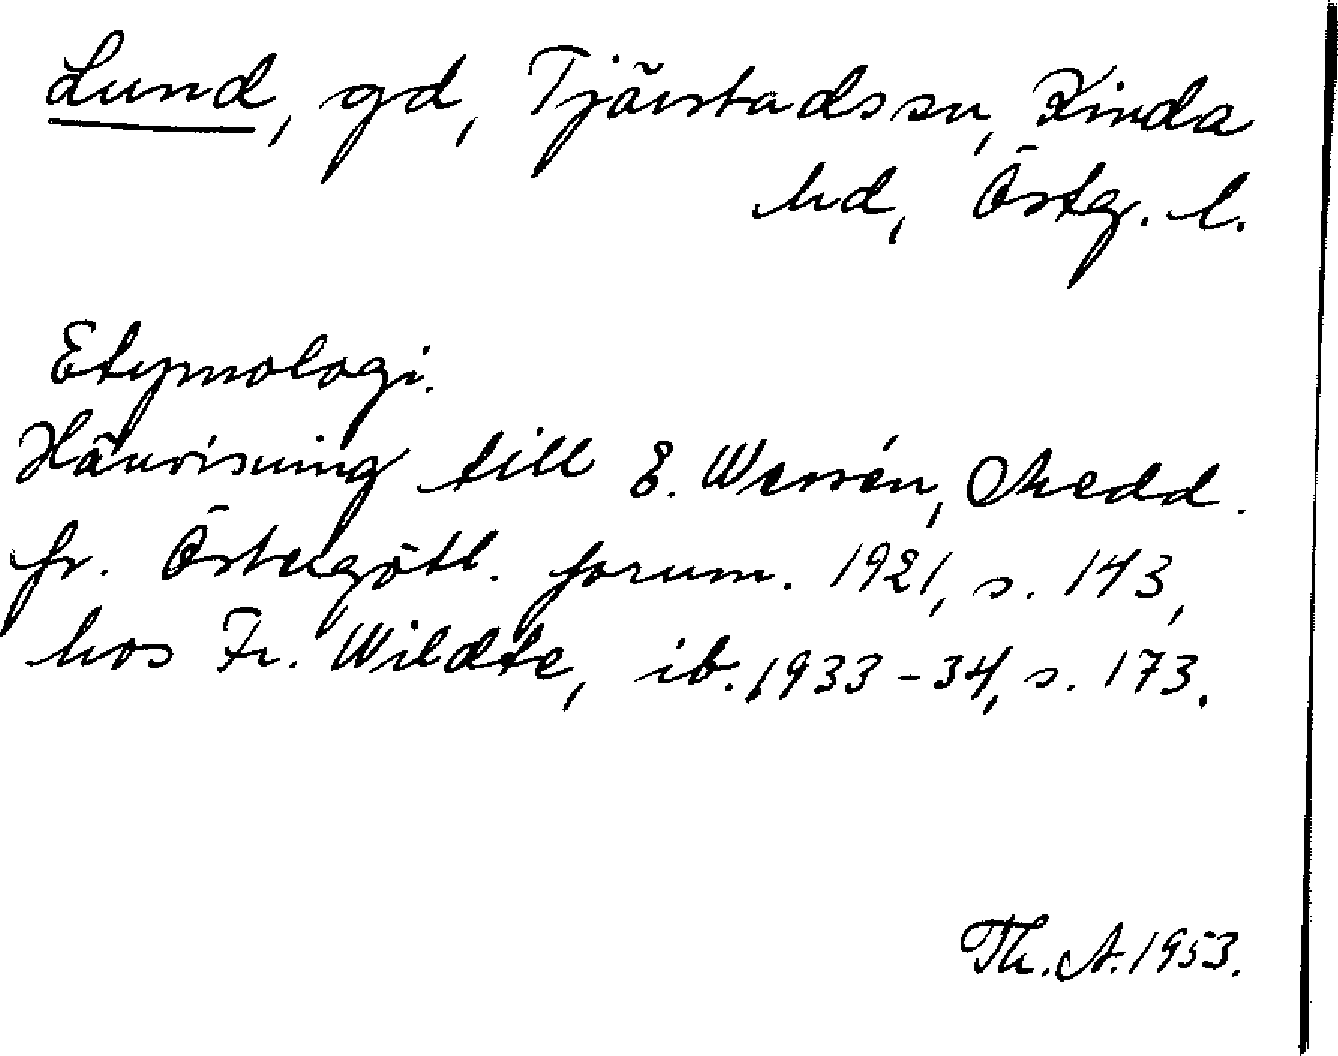 Lund, gd, Tjärstads sn, Kinda
hd, Östg. l.
Etymologi.
Hänvisning till E. Wessén, Medd.
fr. Östergötl. fornm. 1921, s. 143,
hos Fr. Wildte, ib. 1933-34, s. 173.
Th. A. 1953.